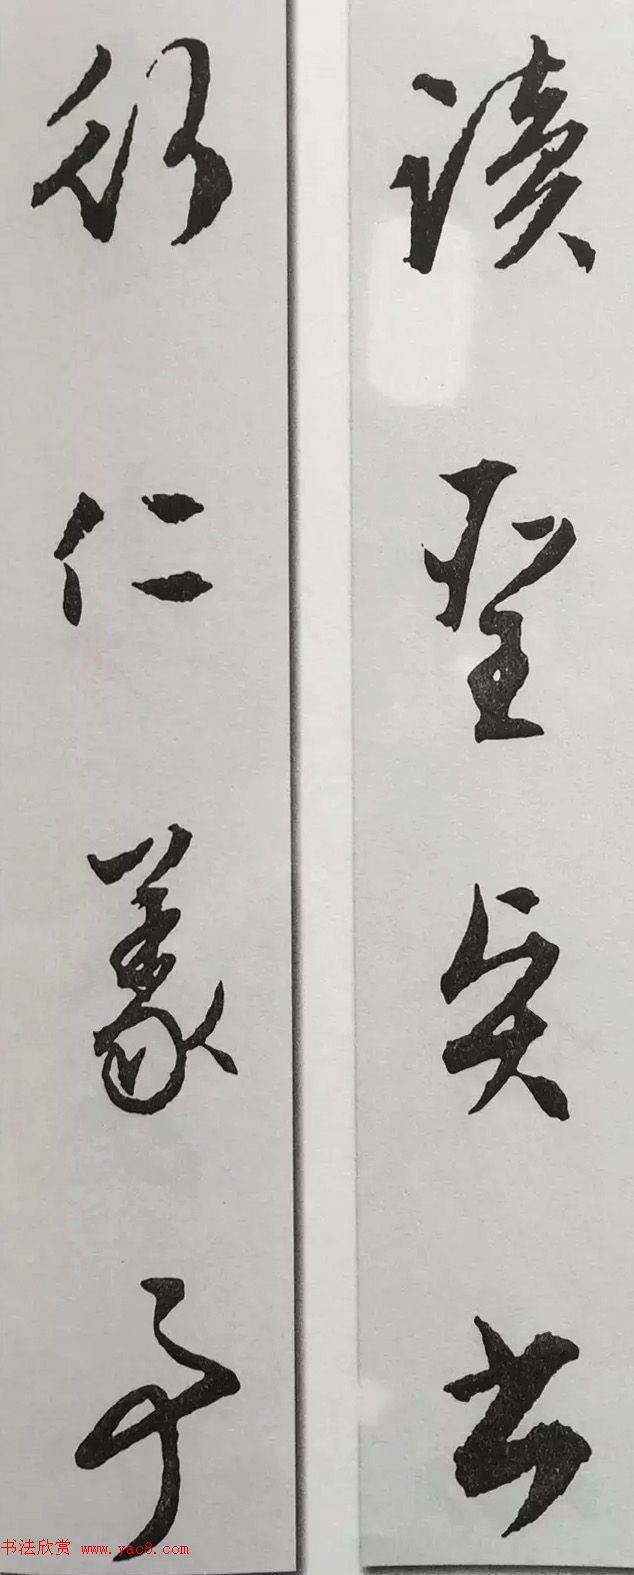 讀聖賢書
行仁義事
书法欣赏 www.yac8.com